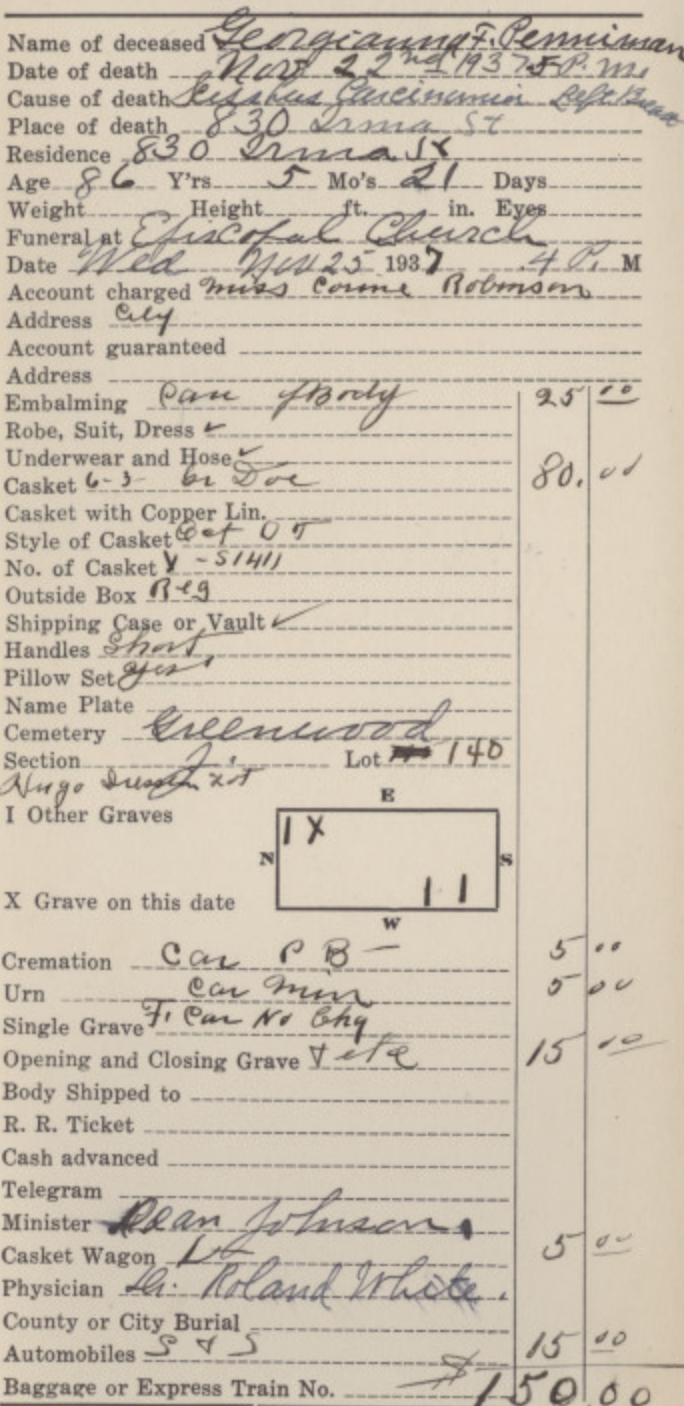 Name of deceased Georgianna F. Penniman
Date of death Nov 22nd 1937 5 P. M.
Cause of death Carcinomia Left Breast
Place of death 830 Irma St
Residence 830 Irma St
Age 86 Y'rs 5 Mo's 21 Days
Weight Height ft. in. Eyes
Funeral at Episcopal Church
Date Wed Nov 25 1937 4 P. M
Account charged Miss Connie Robinson
Address City
Account guaranteed
Address
Embalming Care of Body 25 00
Robe, Suit, Dress ✓
Underwear and Hose ✓
Casket 6-3 Gr Doe 80. 00
Casket with Copper Lin.
Style of Casket Oct
No. of Casket Y - 51411
Outside Box Reg
Shipping Case or Vault ✓
Handles Short
Pillow Set yes
Name Plate
Cemetery Greenwood
Section J. Lot 140
Hugo Lot
I Other Graves
E
I X
N S
X Grave on this date
I I
W
Cremation Car P B - 5 00
Urn Car Min 5 00
Single Grave F. Car No Chg
Opening and Closing Grave 15 00
Body Shipped to
R. R. Ticket
Cash advanced
Telegram
Minister Dean Johnson.
Casket Wagon 5 00
Physician Dr. Roland White.
County or City Burial
Automobiles S & S 15 00
Baggage or Express Train No. $ 150.00